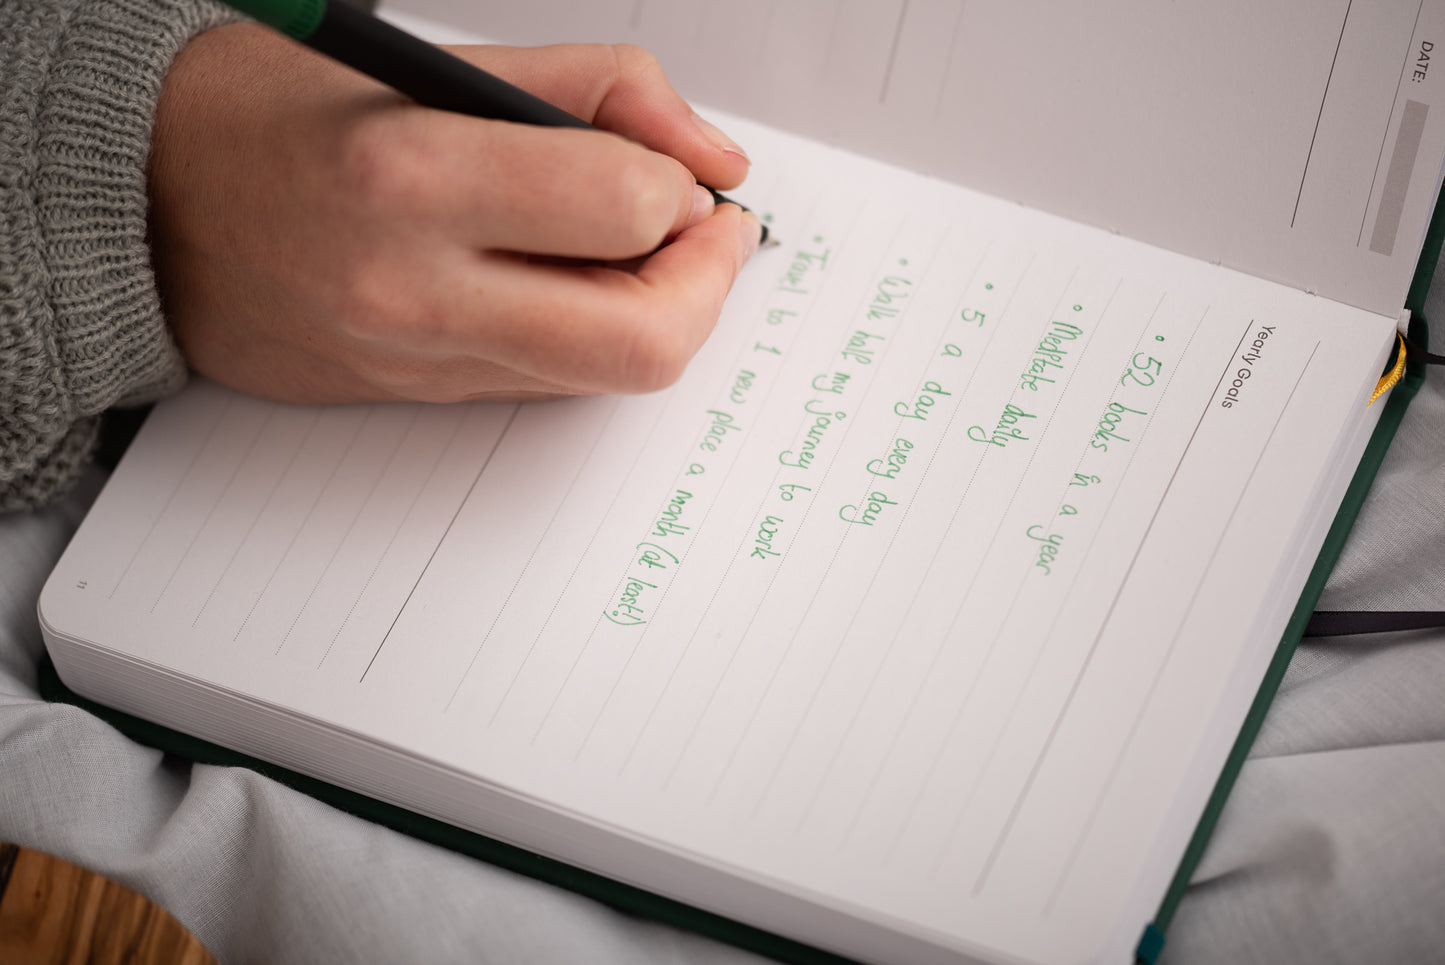 DATE:
Yearly Goals
• 52 books in a year
• Meditate daily
• 5 a day every day
• Walk half my journey to work
• Travel to 1 new place a month (at least!)
•
11